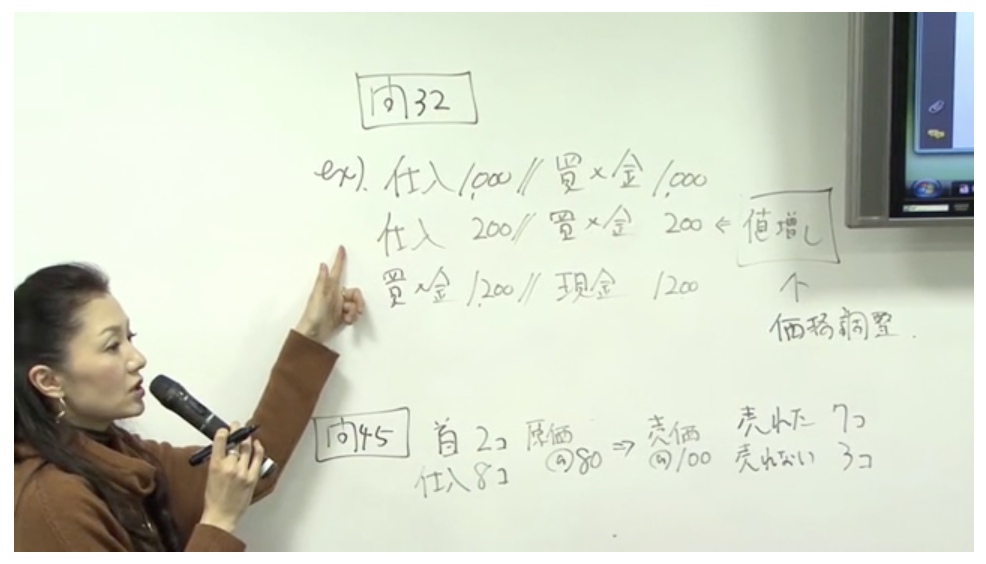 問32
ex). 仕入 1,000 // 買×金 1,000
仕入 200 // 買×金 200 ← 値増し
買×金 1,200 // 現金 1200
↑
価格調整.
問45
首 2コ 原価 ⇒ 売価 売れた 7コ
仕入 8コ @80 @100 売れない 3コ